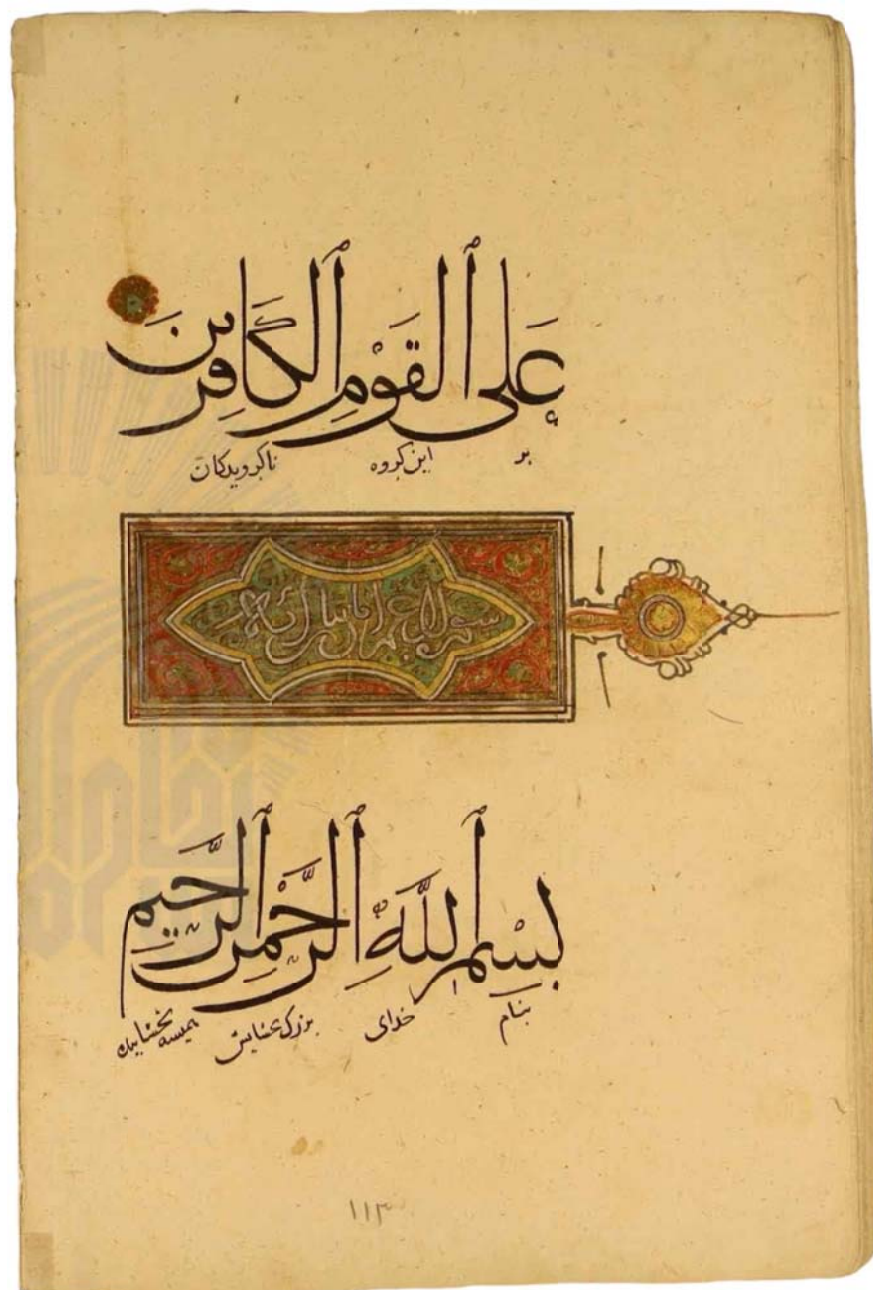 عَلَى ٱلْقَوْمِ ٱلْكَافِرِينَ
بر این کروه ناکرویدکان
سورة آل عمران مائتا آية
بِسْمِ ٱللَّهِ ٱلرَّحْمٰنِ ٱلرَّحِيمِ
بنام خدای بزرک بخشایش همیشه بخشاینده
۱۱۳